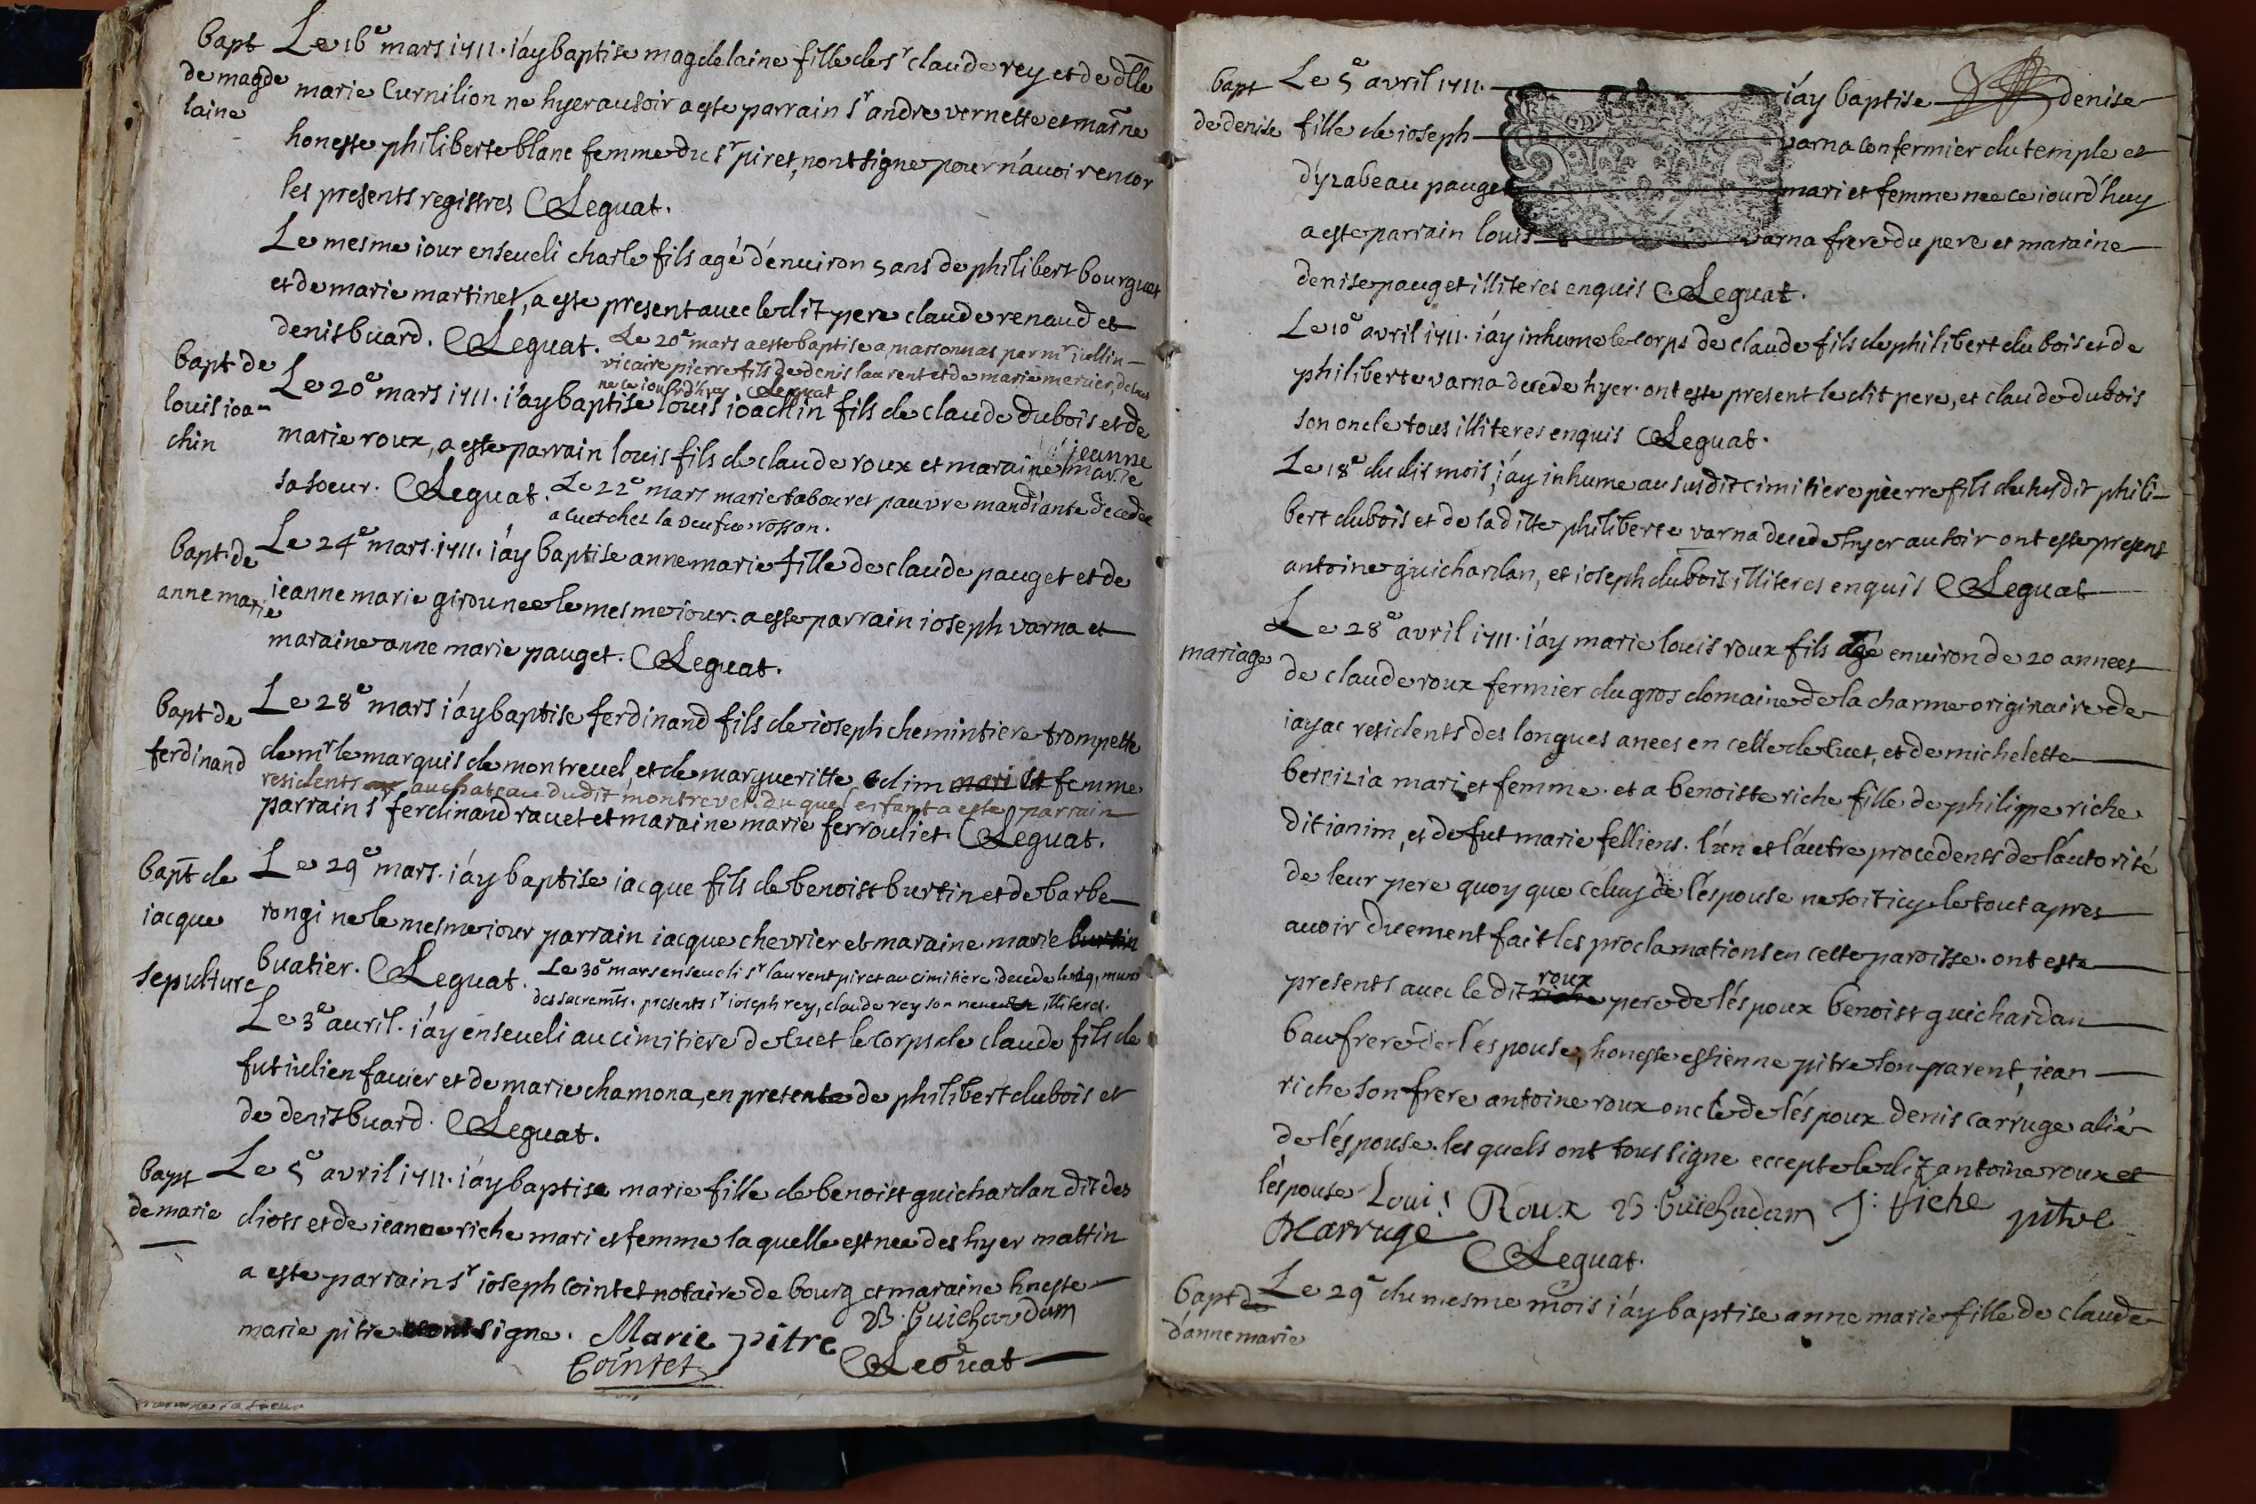 bapt Le 16e mars 1711. i'ay baptise magdelaine fille de sr claude rey et de dlle
de magde marie Curnilion ne hyer au soir a este parrain sr andre vernette et marne
laine
honeste philiberte blanc femme du sr piret, nont signe pour n'auoir encor
les presents registres Leguat.
Le mesme iour enseueli charle fils agé d'enuiron 5 ans de philibert bourguet
et de marie martinet, a este present auec le dit pere claude renaud et
denis buard. Leguat. Le 20e mars a este baptise a marsonnas par mr iullin
vicaire pierre fils de denis laurent et de marie mercier, de
ne ce iourd'huy Leguat
bapt de Le 20e mars 1711. i'ay baptise louis ioachin fils de claude dubois et de
louis ioa- marie roux, a este parrain louis fils de claude roux et maraine marie
chin jeanne
sa soeur. Leguat. Le 22e mars marie tabouret pauvre mandiante decedee
a cuet chez la veufue rosson.
bapt de Le 24e mars. 1711. i'ay baptise anne marie fille de claude pauget et de
anne marie ieanne marie girou nee le mesme iour. a este parrain ioseph varna et
maraine anne marie pauget. Leguat.
bapt de Le 28e mars i'ay baptise ferdinand fils de ioseph chemintiere trompette
ferdinand de mr le marquis de montreuel et de margueritte edim mari et femme
residents au chateau dudit montrevel duquel enfant a este parrain
parrain sr ferdinand rauet et maraine marie ferrouliet. Leguat.
bapt de Le 29e mars. i'ay baptise iacque fils de benoist burtin et de barbe
iacque rongi ne le mesme iour parrain iacque chevrier et maraine marie burtin
buatier. Leguat. Le 30e mars enseueli sr laurent piret au cimitiere decede le 29, muni
sepulture des sacremts. presents sr ioseph rey, claude rey son neueu illiteres.
Le 3e auril. i'ay enseueli au cimitiere de cuet le corps de claude fils de
fut iulien fauier et de marie chamona, en presente de philibert dubois et
de denis buard. Leguat.
bapt Le 5e avril 1711. i'ay baptise marie fille de benoist guichardan dit des
de marie diots et de ieanne riche mari et femme la quelle est nee des hyer mattin
a este parrain sr ioseph cointet notaire de bourg et maraine hneste
marie pitre ont signe. Marie pitre B. Guichardam
Cointet Leguat
bapt Le 5e avril 1711. i'ay baptise denise
de denise fille de ioseph varna confermier du temple et
d'yzabeau pauget mari et femme nee ce iourd'huy
a este parrain louis varna frere du pere et maraine
denise pauget illiteres enquis Leguat.
Le 10e avril 1711. i'ay inhume le corps de claude fils de philibert dubois et de
philiberte varna decede hyer. ont este present le dit pere, et claude dubois
son oncle tous illiteres enquis Leguat.
Le 18e du dit mois, i'ay inhume au susdit cimitiere pierre fils du susdit phili-
bert dubois et de la ditte philiberte varna decede hyer au soir ont este present
antoine guichardan, et ioseph dubois illiteres enquis Leguat
Le 28e avril 1711. i'ay marie louis roux fils agé enuiron de 20 annees
mariage de claude roux fermier du gros domaine de la charme originaire de
iayac residents des longues anees en celle de Cuet, et de michelette
berizia mari et femme. et a benoiste riche fille de philippe riche
dit ianim, et de fut marie felliens. l'un et l'autre procedents de l'autorité
de leur pere quoy que celuy de l'espouse ne soit icy le tout apres
auoir duement fait les proclamations en cette paroisse. ont este
presents auec le dit riche roux pere de l'espoux benoist guichardan
baufrere de l'espouse, honeste estienne pitre son parent, iean
riche son frere antoine roux oncle de l'espoux denis carruge alié
de l'espouse. les quels ont tous signe eccepte le dit antoine roux et
l'espouse Louis Roux B. Guichadam J. riche pitre
D Carruge Leguat.
bapt de Le 29e du mesme mois i'ay baptise anne marie fille de claude
d'anne marie